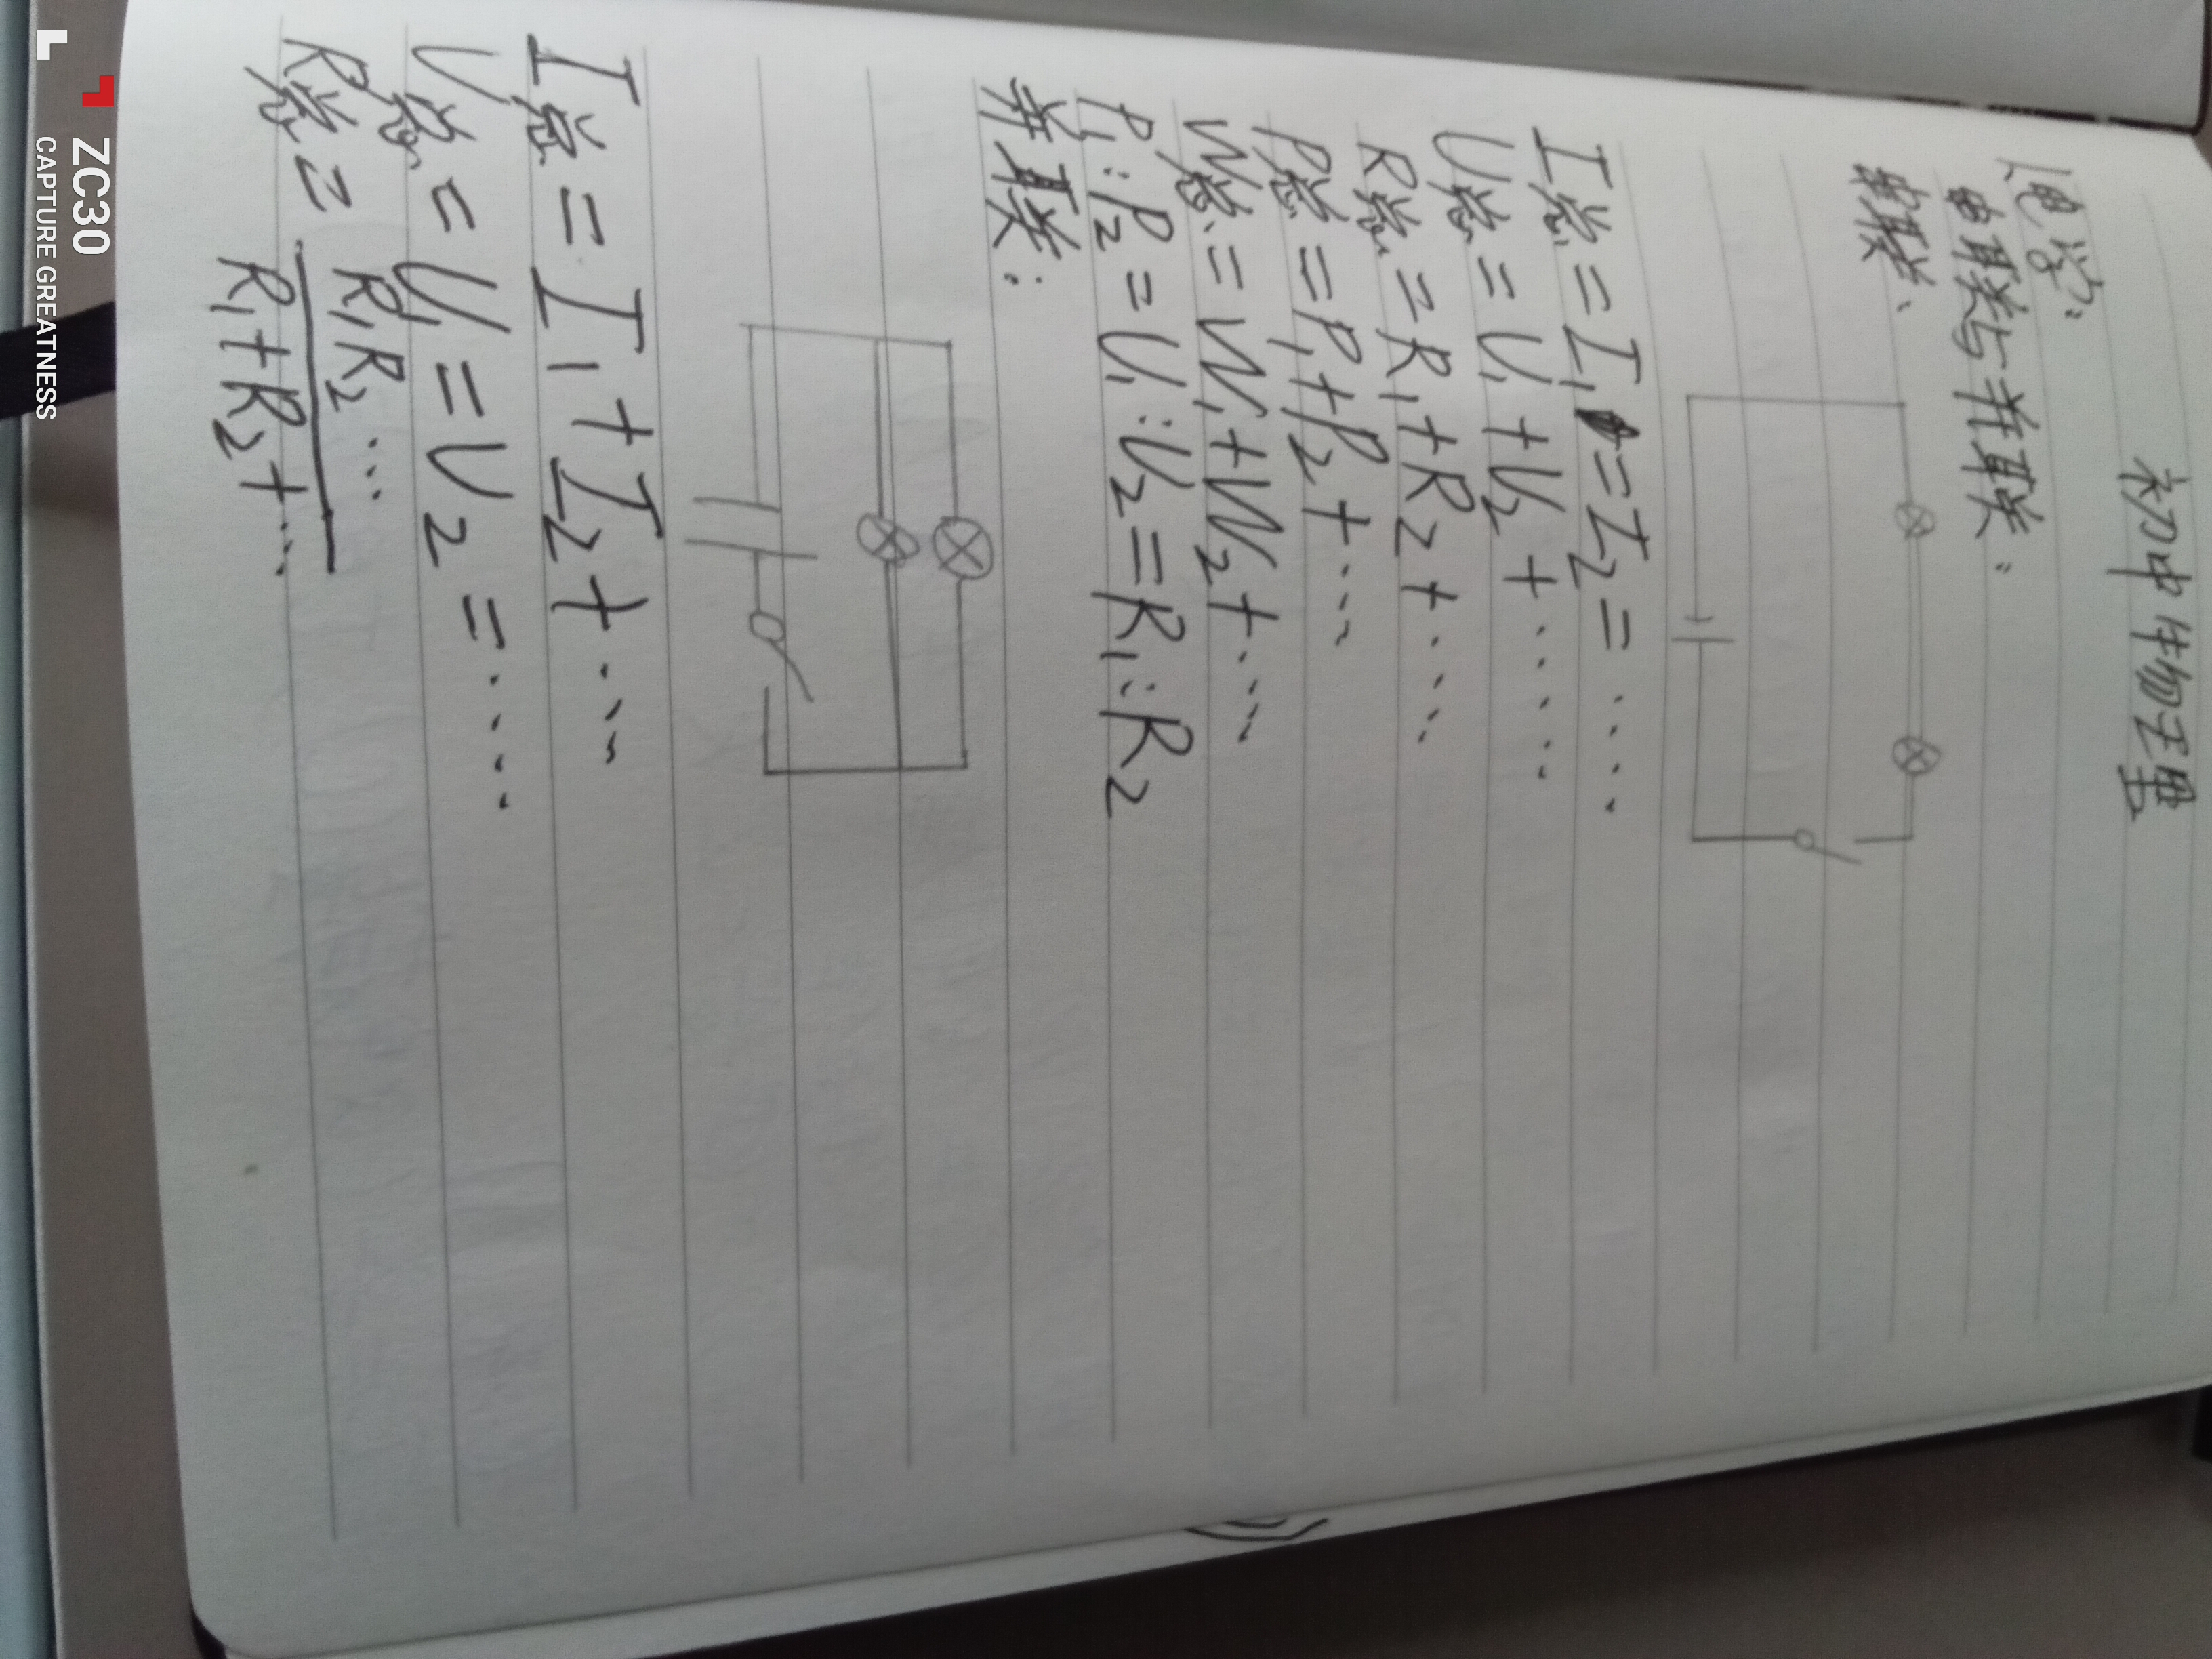 初中物理
电学:
串联与并联:
串联:
I总=I₁=I₂=……
U总=U₁+U₂+……
R总=R₁+R₂+……
P总=P₁+P₂+……
W总=W₁+W₂+……
P₁:P₂=U₁:U₂=R₁:R₂
并联:
I总=I₁+I₂+……
U总=U₁=U₂=……
R总=R₁R₂…
R₁+R₂+…
ZC30
CAPTURE GREATNESS